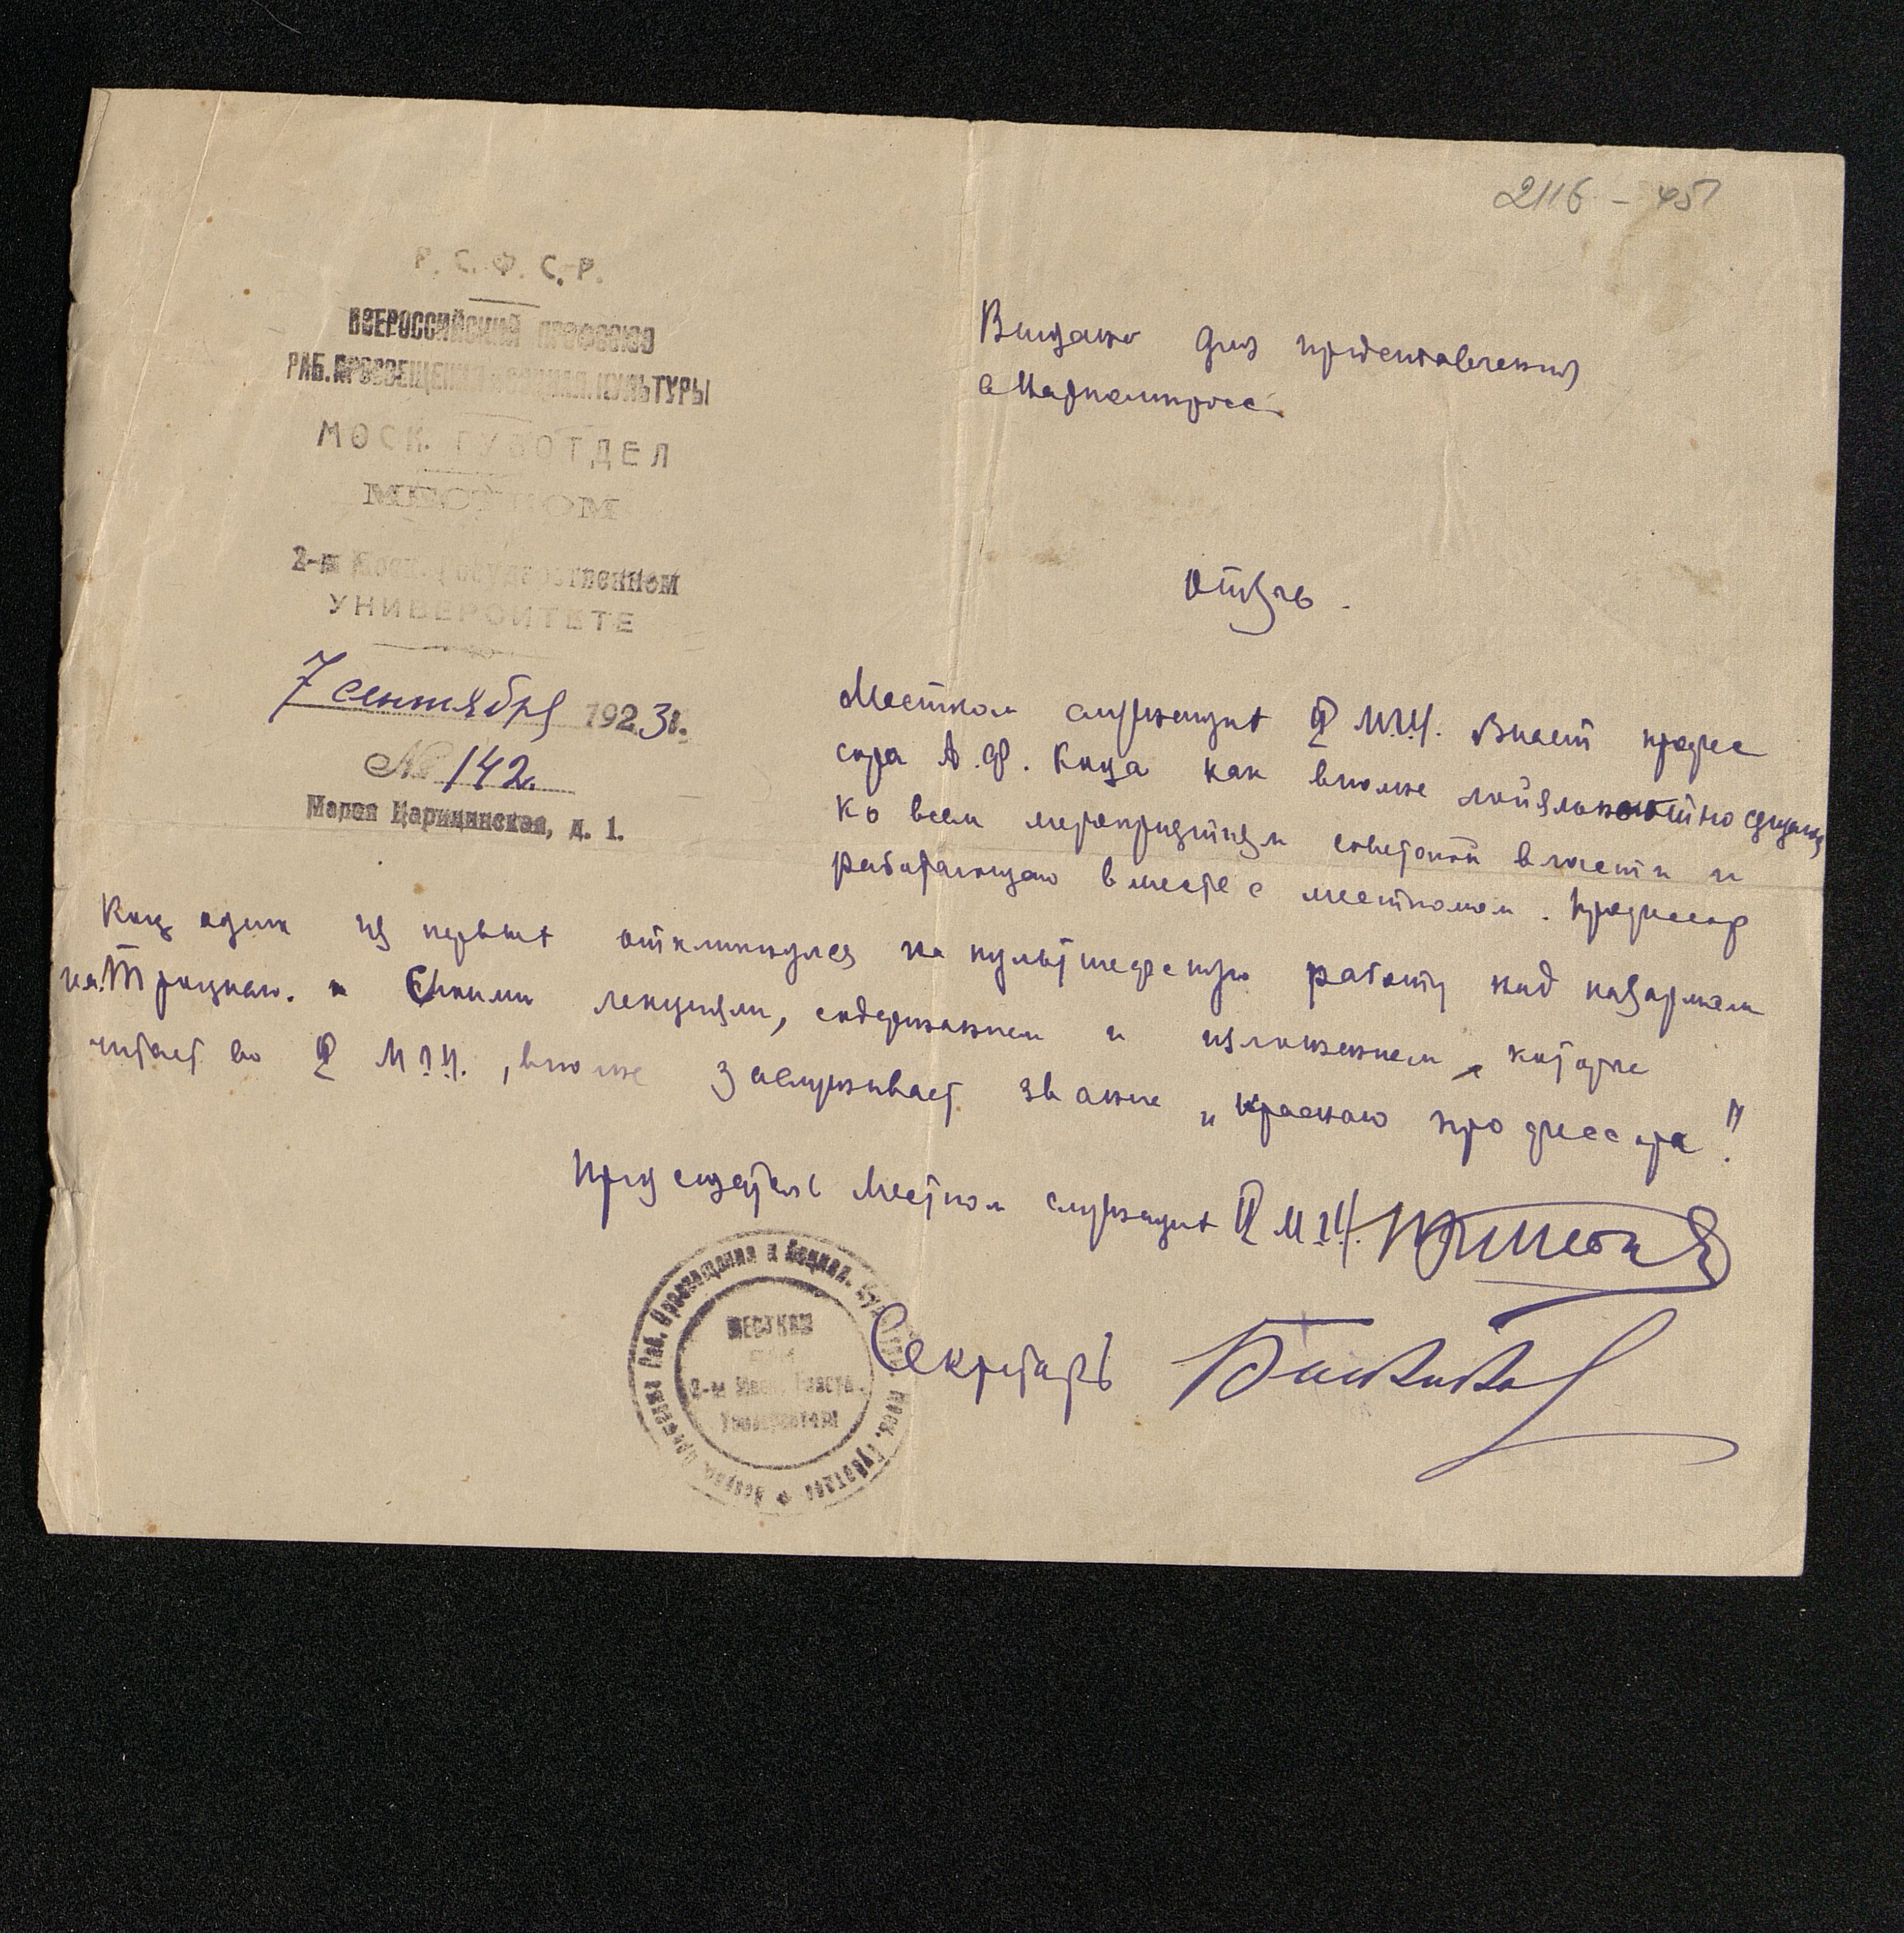 2116-45
Р.С.Ф.С.Р.
ВСЕРОССИЙСКИЙ ПРОФСОЮЗ
РАБ. ПРОСВЕЩЕНИЯ и СОЦИАЛ. КУЛЬТУРЫ
МОСК. ГУБОТДЕЛ
МЕСТКОМ
2-м Моск. Государственном
УНИВЕРСИТЕТЕ
7 сентября 1923 г.
№ 142.
Малая Царицинская, д. 1.
Выдано для представления
в Наркомпросс
Отзыв.
Местком служащих II М.Г.У. знает профес
сора А.Ф. Котса как вполне лойяльно
ко всем мероприятиям советской власти и
работающаго вместе с месткомом. Профессор
Котс один из первых откликнулся на культшефскую работу над казармами
им. Троцкаго. Своими лекциями, содержанием и изложением, которые
читает во II М.Г.У., вполне заслуживает звание „краснаго профессора"!
Председатель Местком служащих II М.Г.У.
Секретарь
МЕСТКОМ
2-м Моск. Госуд.
Университете